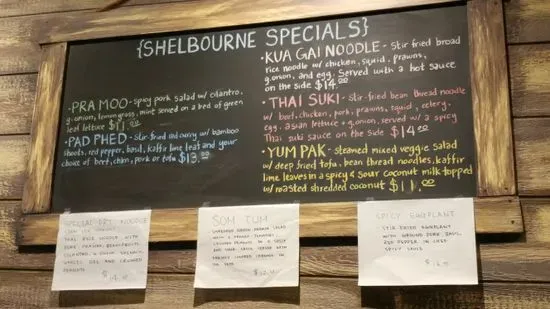 {SHELBOURNE SPECIALS}
• PRA MOO - spicy pork salad w/ cilantro,
g.onion, lemongrass, mint served on a bed of green
leaf lettuce $11.00
• PAD PHED - Stir-fried red curry w/ bamboo
shoots, red pepper, basil, kaffir lime leaf and your
choice of beef, chkn, pork or tofu $13.00
• KUA GAI NOODLE - Stir fried broad
rice noodle w/ chicken, squid, prawns,
g.onion, and egg. Served with a hot sauce
on the side $14.00
• THAI SUKI - Stir-fried bean thread noodle
w/ beef, chicken, pork, prawns, squid, celery,
egg, asian lettuce + g.onion, served w/ a spicy
Thai suki sauce on the side $14.00
• YUM PAK - steamed mixed veggie salad
w/ deep fried tofu, bean thread noodles, kaffir
lime leaves in a spicy & sour coconut milk topped
w/ roasted shredded coconut $11.00
SPECIAL NOODLE
THAI RICE NOODLE WITH
PORK
PEANUTS
SOM TUM
SHREDDED GREEN PAPAYA SALAD
WITH TOMATOES
IN A SPICY
AND SOUR SAUCE SERVED WITH
ON THE SIDE
SPICY EGGPLANT
- STIR FRIED EGGPLANT
WITH GROUND PORK, BASIL,
RED PEPPER IN CHEF
SPICY SAUCE